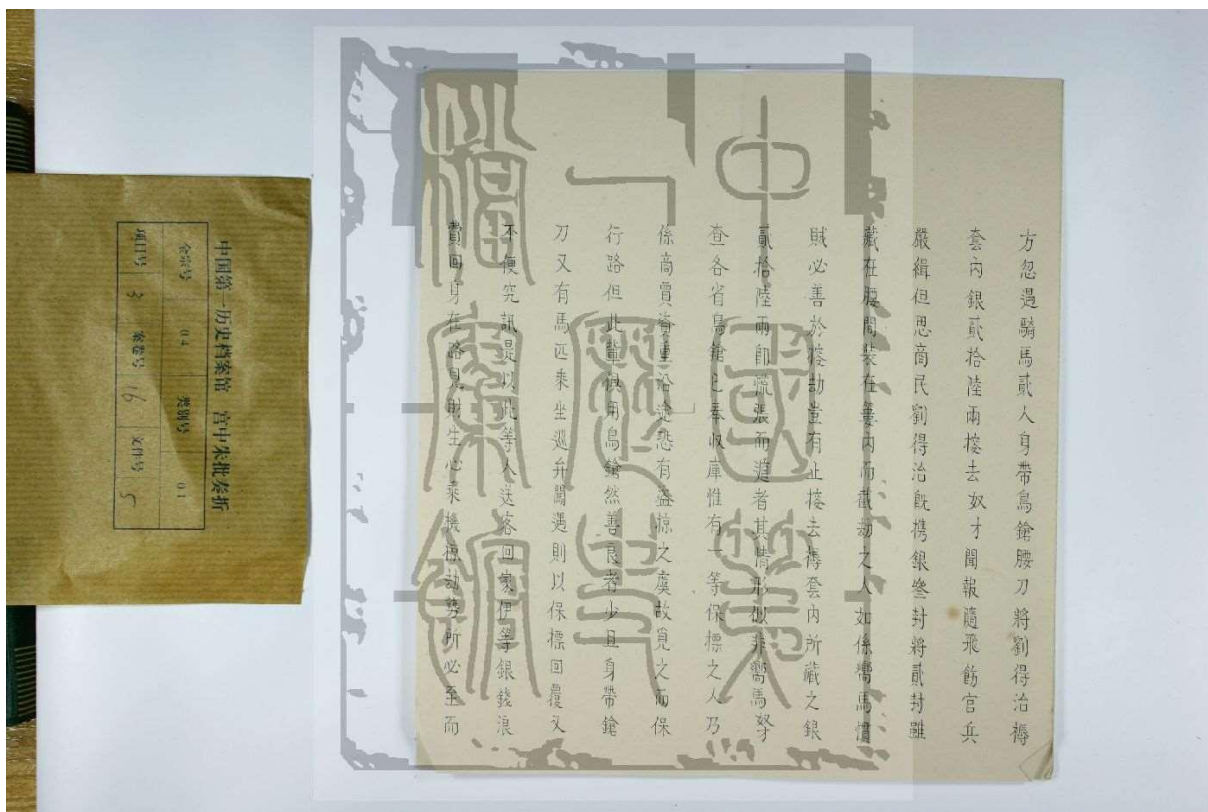 方忽遇騎馬貳人身帶鳥鎗腰刀將劉得治褥
套內銀貳拾陸兩搂去奴才聞報隨飛飭官兵
嚴緝但思商民劉得治既携銀叄封將貳封雖
藏在腰間裝在 內而截劫之人如係嚮馬慣
賊必善於搂劫豈有止搂去褥套內所藏之銀
貳拾陸兩即慌張而逃者其情形似非嚮馬奴才
查各省鳥鎗已奉收庫惟有一等保標之人乃
係商賈資重沿途恐有盜掠之虞故覓之而保
行路但此輩俱用鳥鎗然善良者少且身帶鎗
刀又有馬匹乘坐巡弁聞遇則以保標回覆又
不便究訊是以此等人送客回家伊等銀錢浪
費回身在路見財生心乘機標劫勢所必至而
中國第一歷史檔案館
中国第一历史档案馆 宫中朱批奏折
全宗号 04 类别号 01
项目号 3 案卷号 16 文件号 5